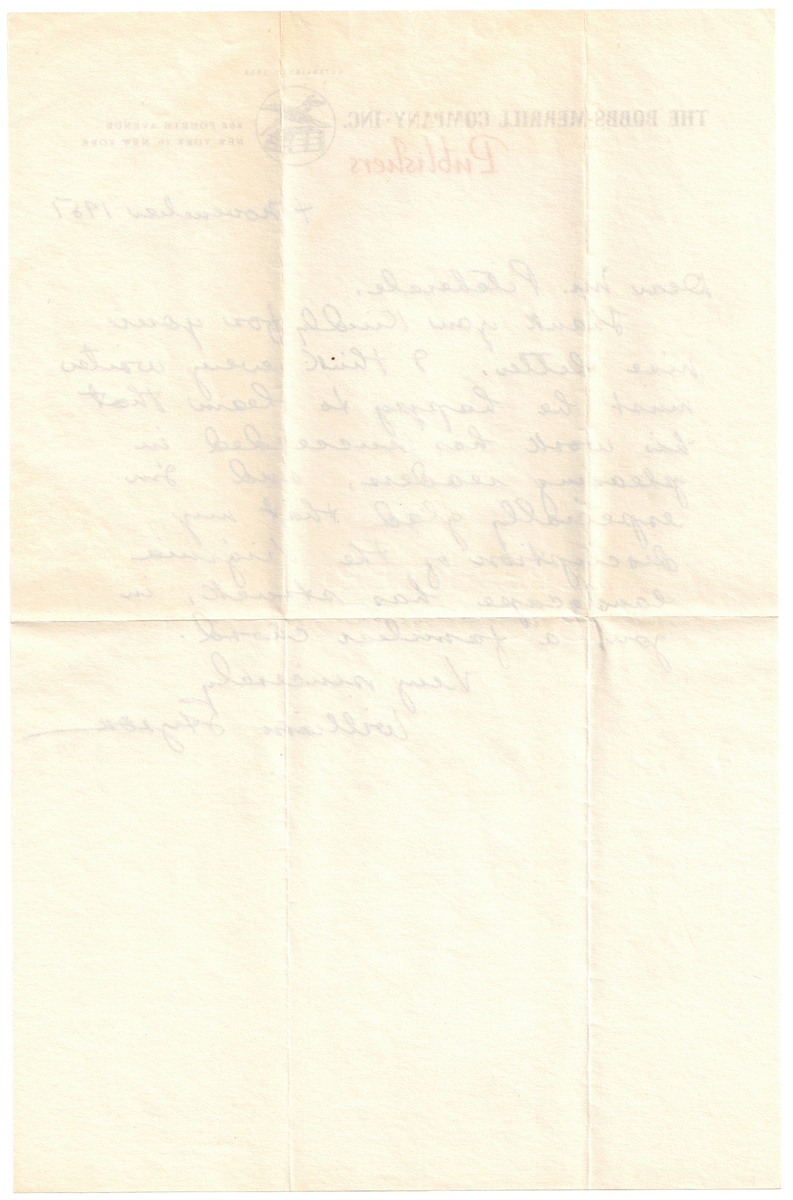 THE BOBBS-MERRILL COMPANY · INC.
Publishers
468 FOURTH AVENUE
NEW YORK 16 NEW YORK
November 1951
Dear Mr.
Thank you kindly for your
nice letter. I think every writer
must be happy to learn that
his work has succeeded in
pleasing readers, and I'm
especially glad that my
description of the Virginia
landscape has struck, in
you, a familiar chord.
Very sincerely
William Styron